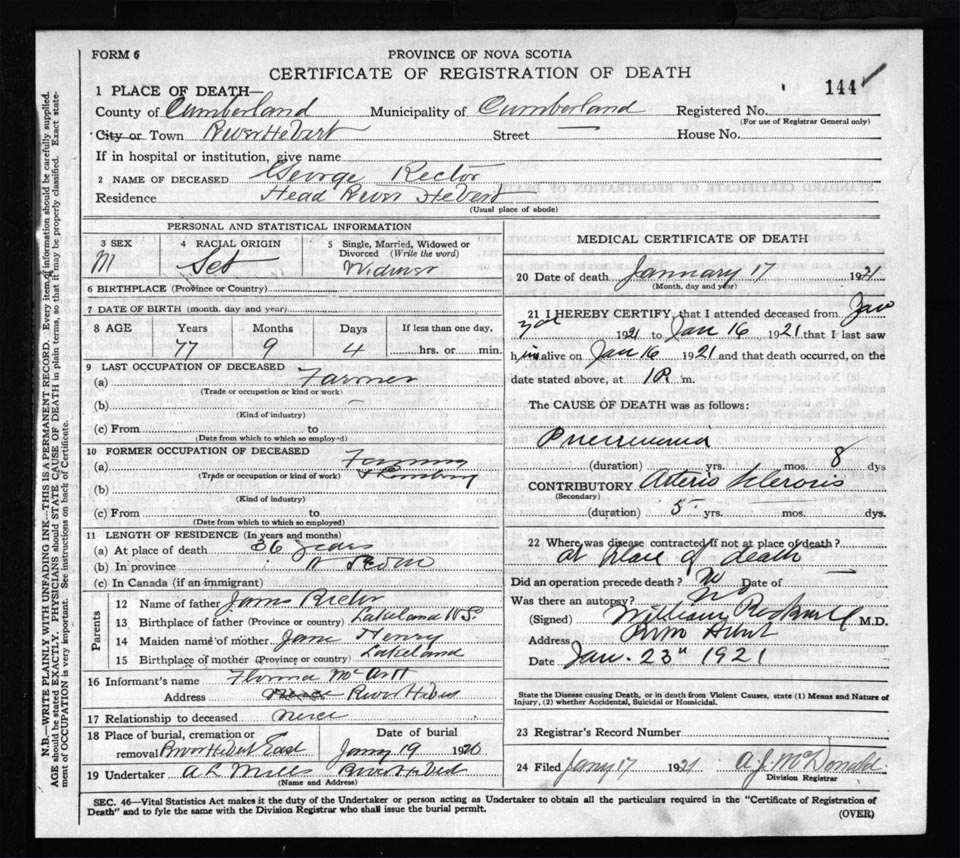 FORM 6
PROVINCE OF NOVA SCOTIA
CERTIFICATE OF REGISTRATION OF DEATH
144
1 PLACE OF DEATH—
County of Cumberland Municipality of Cumberland Registered No.
(For use of Registrar General only)
City or Town River Hebert Street — House No.
If in hospital or institution, give name
2 NAME OF DECEASED George Rector
Residence Head River Hebert
(Usual place of abode)
PERSONAL AND STATISTICAL INFORMATION
3 SEX M
4 RACIAL ORIGIN
5 Single, Married, Widowed or Divorced (Write the word) Widower
6 BIRTHPLACE (Province or Country)
7 DATE OF BIRTH (month, day and year)
8 AGE Years Months Days If less than one day,
77 9 4 hrs. or min.
9 LAST OCCUPATION OF DECEASED
(a) Farmer
(Trade or occupation or kind or work)
(b) —
(Kind of industry)
(c) From to
(Date from which to which so employed)
10 FORMER OCCUPATION OF DECEASED
(a) Farming
(Trade or occupation or kind of work)
(b)
(Kind of industry)
(c) From to
(Date from which to which so employed)
11 LENGTH OF RESIDENCE (In years and months)
(a) At place of death 36 years
(b) In province
(c) In Canada (if an immigrant)
Parents
12 Name of father James Rector
13 Birthplace of father (Province or country) Lakeland N.S.
14 Maiden name of mother Jane Henry
15 Birthplace of mother (Province or country) Lakeland
16 Informant's name
Address River Hebert
17 Relationship to deceased niece
18 Place of burial, cremation or removal River Hebert East
Date of burial Jany 19 1920
19 Undertaker A L Mills River Hebert
(Name and Address)
MEDICAL CERTIFICATE OF DEATH
20 Date of death January 17 1921
(Month, day and year)
21 I HEREBY CERTIFY, that I attended deceased from Jan
3rd 1921 to Jan 16 1921 that I last saw
him alive on Jan 16 1921 and that death occurred, on the
date stated above, at 1 P. m.
The CAUSE OF DEATH was as follows:
Pneumonia
(duration) yrs. mos. 8 dys
CONTRIBUTORY Arterio Sclerosis
(Secondary)
(duration) 5 yrs. mos. dys.
22 Where was disease contracted if not at place of death?
at place of death
Did an operation precede death? No Date of —
Was there an autopsy? No
(Signed) William Rockwell M.D.
Address River Hebert
Date Jan. 23rd 1921
State the Disease causing Death, or in death from Violent Causes, state (1) Means and Nature of
Injury, (2) whether Accidental, Suicidal or Homicidal.
23 Registrar's Record Number
24 Filed Jany 17 1921 A. J. McDonald
Division Registrar
SEC. 46—Vital Statistics Act makes it the duty of the Undertaker or person acting as Undertaker to obtain all the particulars required in the "Certificate of Registration of
Death" and to fyle the same with the Division Registrar who shall issue the burial permit.
(OVER)
N.B.—WRITE PLAINLY WITH UNFADING INK—THIS IS A PERMANENT RECORD. Every item of information should be carefully supplied.
AGE should be stated EXACTLY. PHYSICIANS should STATE CAUSE OF DEATH in plain terms, so that it may be properly classified. Exact statement of OCCUPATION is very important. See instructions on back of Certificate.